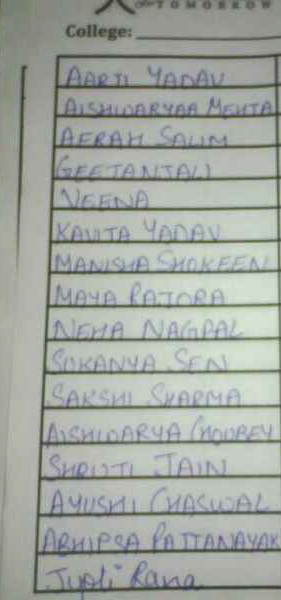 TOMORROW
College:
AARTI YADAV
AISHWARYAA MEHTA
AFRAH SALIM
GEETANJALI
VEENA
KAVITA YADAV
MANISHA SHOKEEN
MAYA RAJORA
NEHA NAGPAL
SUKANYA SEN
SAKSHI SHARMA
AISHWARYA CHOUBEY
SHRUTI JAIN
AYUSHI CHASWAL
ABHIPSA PATTANAYAK
Jyoti Rana